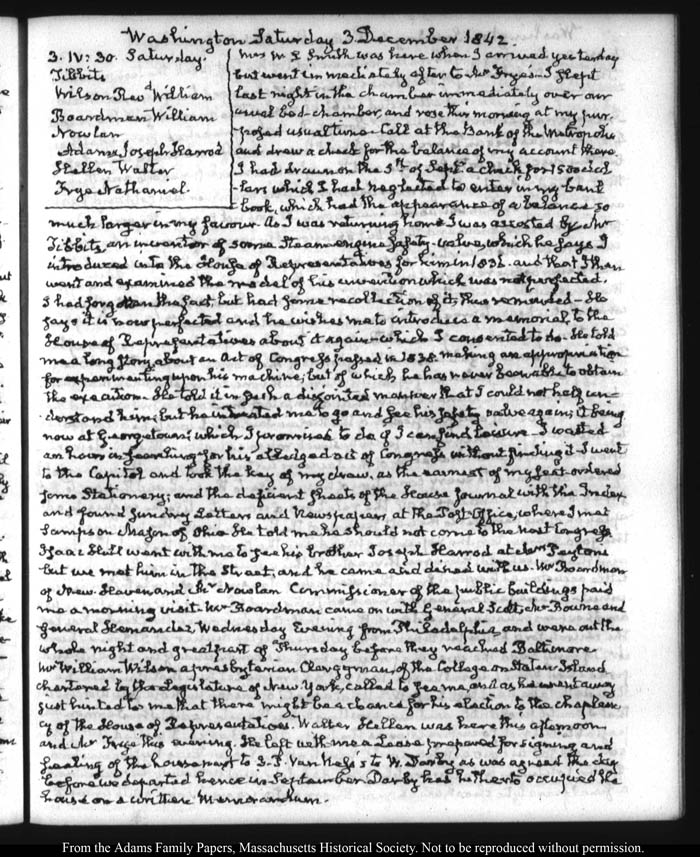 Washington Saturday 3. December 1842.
3. IV: 30. Saturday.
Tibbits
Wilson Revd William
Boardman William
Nowlan
Adams Joseph Harrod
Hellen Walter
Frye Nathaniel.
Mrs W. S. Smith was here when I arrived yesterday
but went immediately after to Mr Frye's. I slept
last night in the chamber immediately over our
usual bed-chamber, and rose this morning at my pur-
posed usual time. Call at the Bank of the Metropolis
and drew a check for the balance of my account there
I had drawn on the 5th of Septr a check for 1500 dol-
lars which I had neglected to enter in my bank
book, which had the appearance of a balance so
much larger in my favour. As I was returning home I was accosted by Mr
Tibbits, an inventor of some Steam-engine Safety-valve, which he says I
introduced into the House of Representatives for him in 1832. and that I then
went and examined the model of his invention which was not perfected.
I had forgotten the fact, but had some recollection of it, thus reminded— He
says it is now perfected and he wishes me to introduce a memorial, to the
House of Representatives about it again—which I consented to do. He told
me a long story about an Act of Congress passed in 1838. making an appropriation
for experimenting upon his machine, but of which he has never been able to obtain
the execution. He told it in such a disjointed manner that I could not help un-
derstand him, but he intreated me to go and see his safety valve again, it being
now at Georgetown; which I promised to do if I can find leisure. I wasted
an hour in searching for his alledged act of Congress without finding it. I went
to the Capitol and took the key of my draw, as the earnest of my seat—ordered
some Stationery; and the deficient sheets of the House Journal with the Index
and found sundry Letters and Newspapers, at the Post-Office, where I met
Sampson Mason of Ohio. He told me he should not come to the next Congress
Isaac Hull went with me to see his brother Joseph Harrod at Mrs Peyton's
but we met him in the Street, and he came and dined with us. Mr Boardman
of New-Haven and Mr Nowlan Commissioner of the public buildings paid
me a morning visit. Mr Boardman came on with General Scott, Mr Bowne and
General Hernandez Wednesday Evening from Philadelphia and were out the
whole night and great part of Thursday before they reached Baltimore
Mr William Wilson a presbyterian Clergyman, of the College on Staten Island
chartered by the Legislature of New York, called to see me, and as he went away
just hinted to me that there might be a chance for his election to the chaplain
cy of the House of Representatives. Walter Hellen was here this afternoon
and Mr Frye this evening. He left with me a Lease prepared for signing and
sealing of the house part to S. P. Van Ness & to W. Darby as was agreed the day
before we departed hence in September. Darby has hitherto occupied the
house on a written Memorandum.
From the Adams Family Papers, Massachusetts Historical Society. Not to be reproduced without permission.